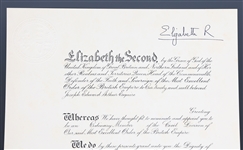 Elizabeth R
Elizabeth the Second, by the Grace of God of the
United Kingdom of Great Britain and Northern Ireland and of Her
other Realms and Territories Queen, Head of the Commonwealth,
Defender of the Faith and Sovereign of the Most Excellent
Order of the British Empire to Our trusty and well beloved
Joseph Edward Esquire
Greeting
Whereas We have thought fit to nominate and appoint you to
be an Ordinary Member of the Civil Division of
Our said Most Excellent Order of the British Empire
We do by these presents grant unto you the Dignity of